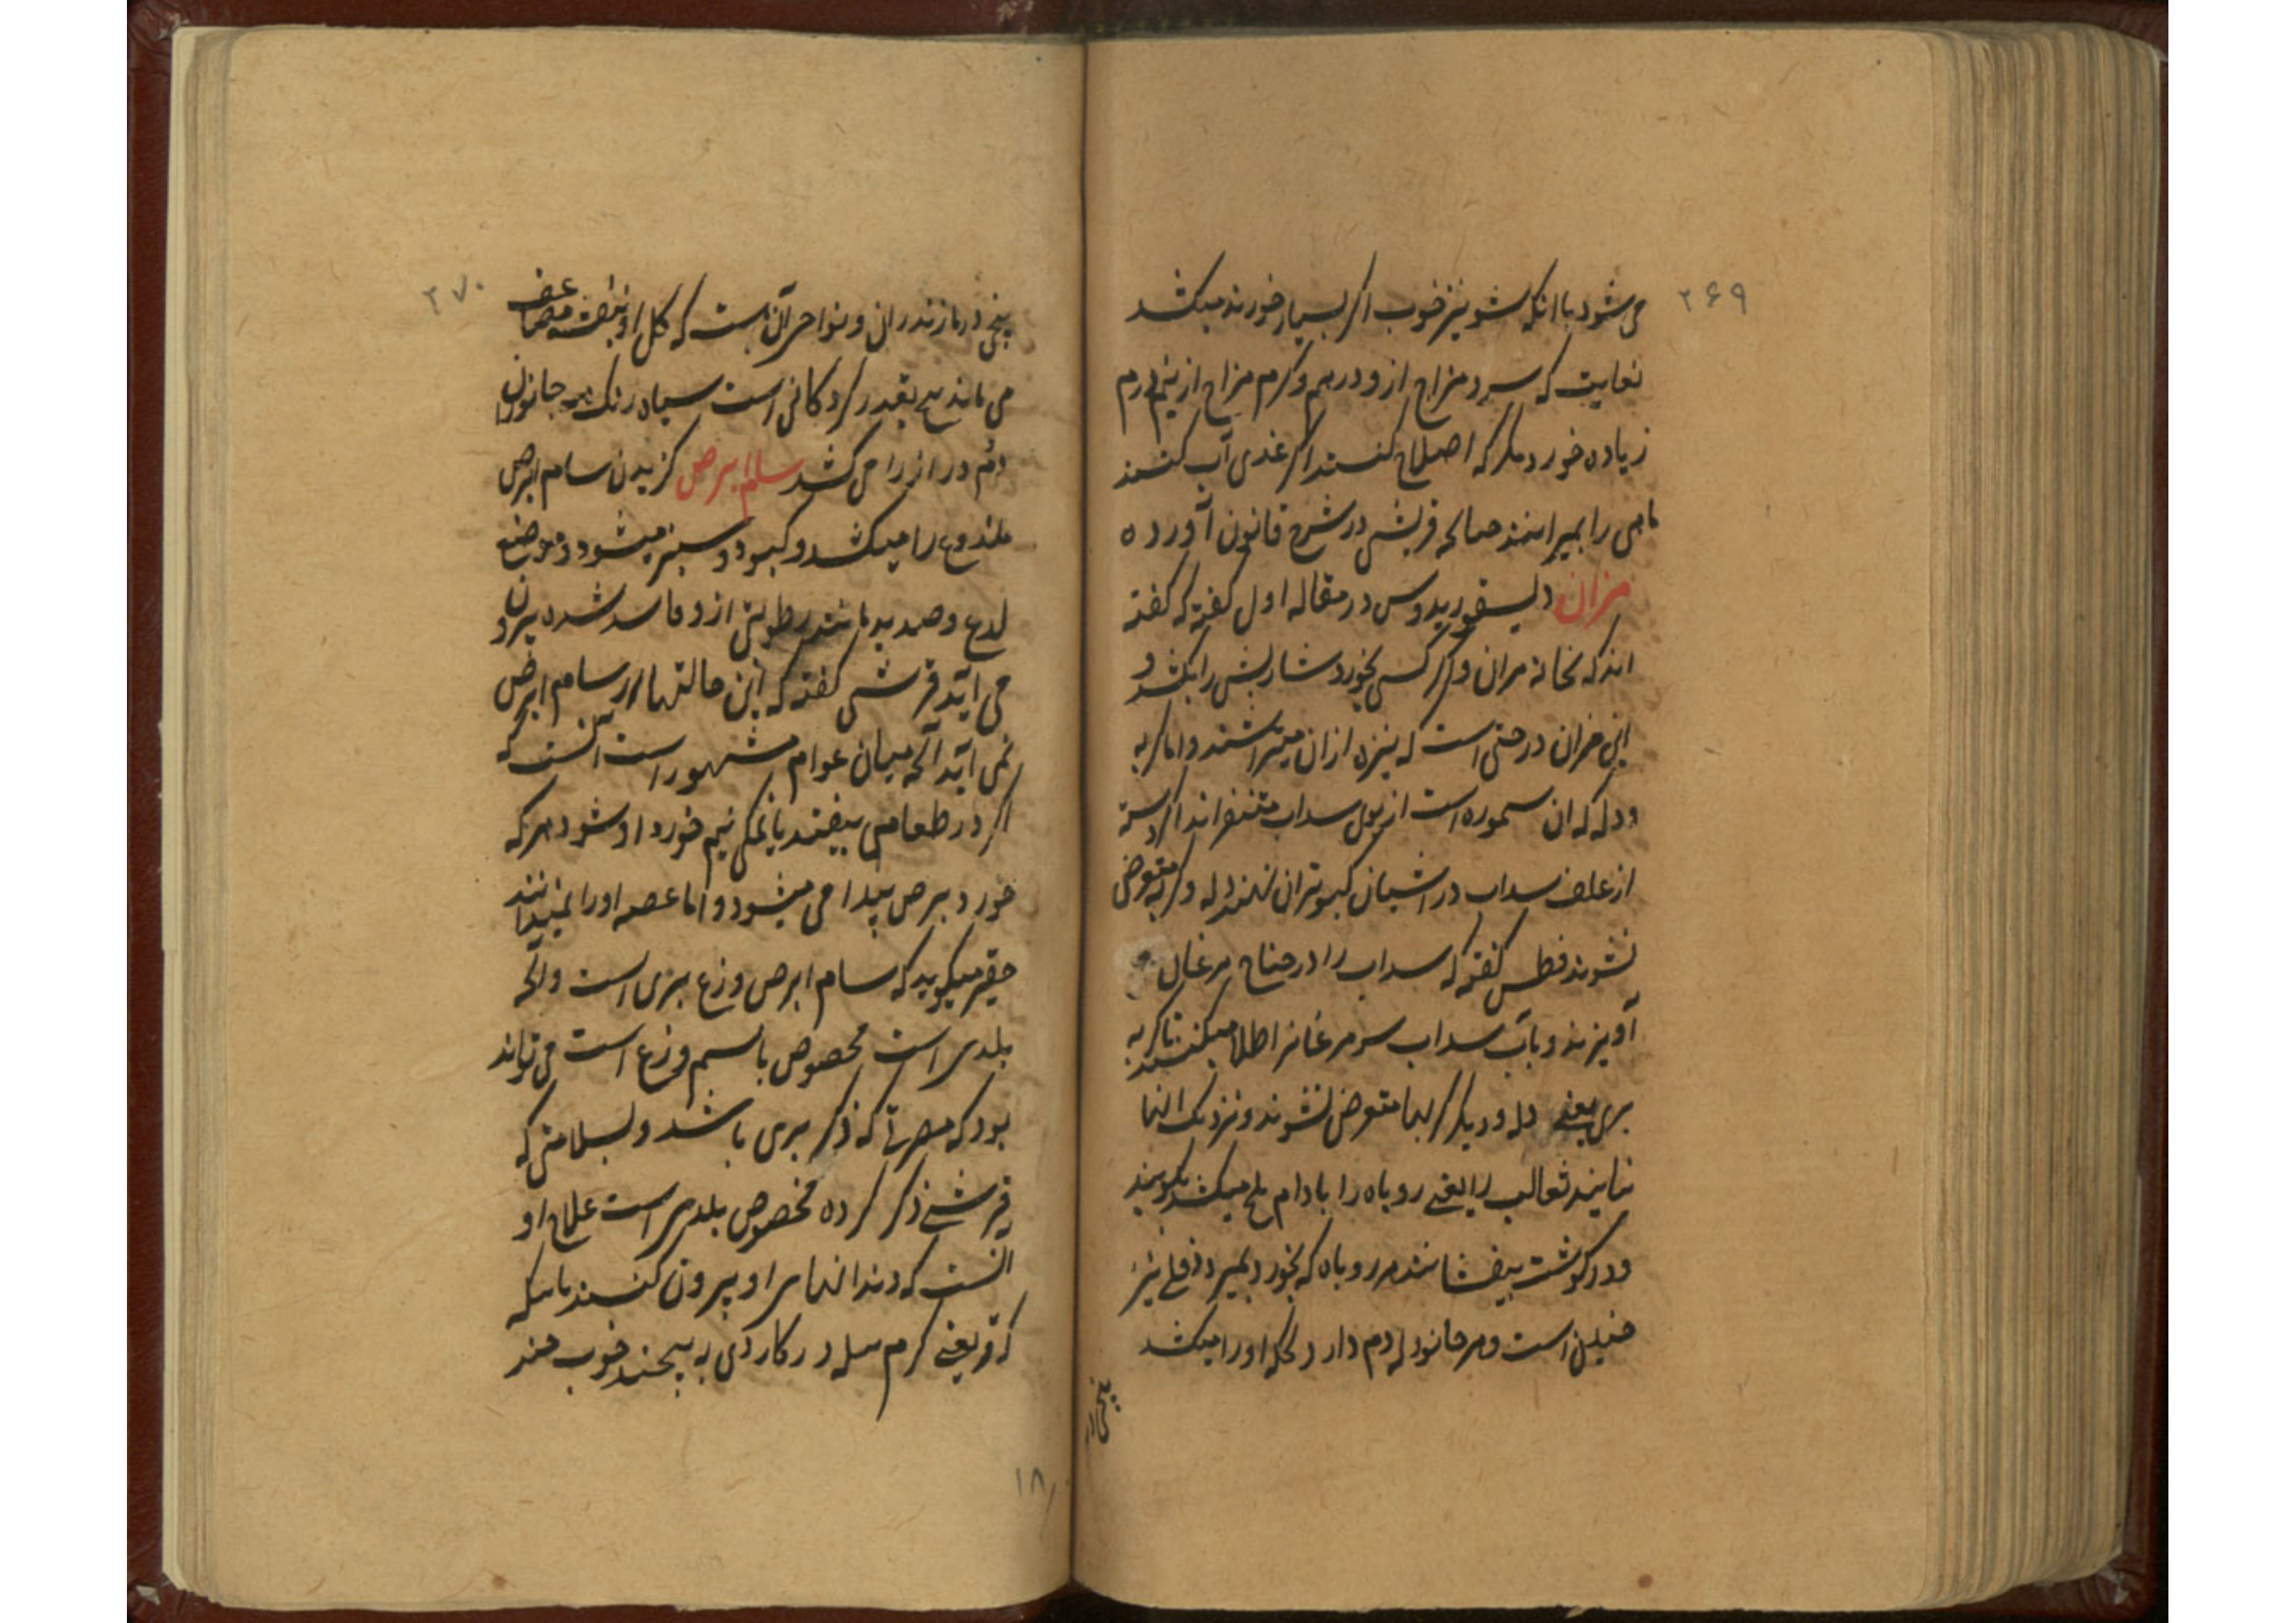 ۲۶۹
می شود با انکه شونیز خوب اکر بسیار خورند میکشد
بغایت که سرد مزاج از دو درهم و کرم مزاج از نیم درم
زیاده خورد مکر که اصلاح کنند اکر غذی آب کنند
ماهی را بمیراند صالحه قرشی در شرح قانون آورده
مران دیسقوریدوس در مقاله اول کفته که کفته
اند که نخاته مران را کر کسی بخورد شاربش را بکشد و
این مران درختی است که نیزه از ان میتراشند و اما کربه
و دله که ان سموره است از بوی سداب متنفراند اکر دسته
از علف سداب در اشیان کبوتران نهند دله و کربه متعرض
نشوند فطس کفته که سداب را در جناح مرغان
آویزند و باب سداب سر مرغانرا طلا میکنند تا کربه
بری یعنی دله و دیکر کربها متعرض نشوند و نزدیک انها
نیایند ثعالب را یعنی روباه را بادام تلخ میکشد بکوبند
و در کوشت بیفشانند هر روباه که بخورد بمیرد دفلی نیز
چنین است و هر جانور که دم دارد کحله او را میکشد
بیخی در
۲۷۰
بیخی در مازندران و نواحی آن است که کل او ببنفشه مضاعف
می ماند بیخ بقدر کردکانی است سیاه رنک همه جانوران
دم دراز را می کشد سام ابرص کزیدن سام ابرص
ملدوغ را میکشد و کبود و سبز میشود و موضع
لدغ و صدید مانند رطوبتی از و فاسد شده بیرون
می آید قرشی کفته که این حالتها از سام ابرص
نمی آید آنچه میان عوام مشهور است انست که
اکر در طعامی بیفتد یا نمکی نیم خورد او شود هر که
خورد برص پیدا می میشود و اما عصه او را نمیدانند
حقیر میکوید که سام ابرص وزغ بری است و آنچه
بلدی است مخصوص باسم وزغ است می تواند
بود که مضرتی که ذکر بری باشد و بسلامتی که
قرشی ذکر کرده مخصوص بلدی است علاج او
انست که دندانهای او بیرون کنند باینکه
که قز یعنی کرم پیله در کاردی به پیچند خوب چند
۱۸